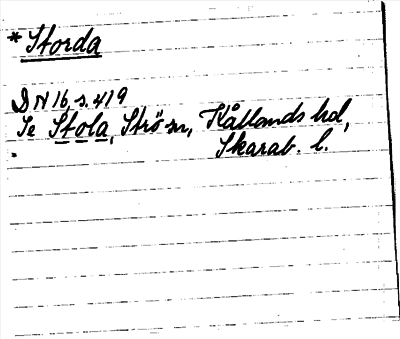 * Storda
DN 16 s. 419
Se Stola, Strö sn, Kållands hd,
Skarab. l.